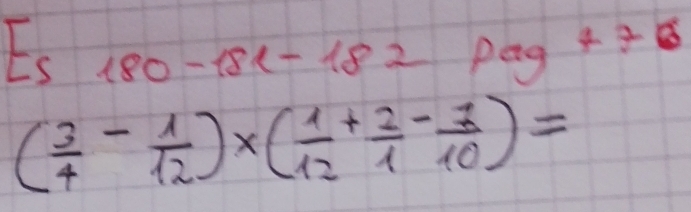 Es 180-181-182 pag 778
(3/4 - 1/12) × (1/12 + 2/1 - 7/10) =